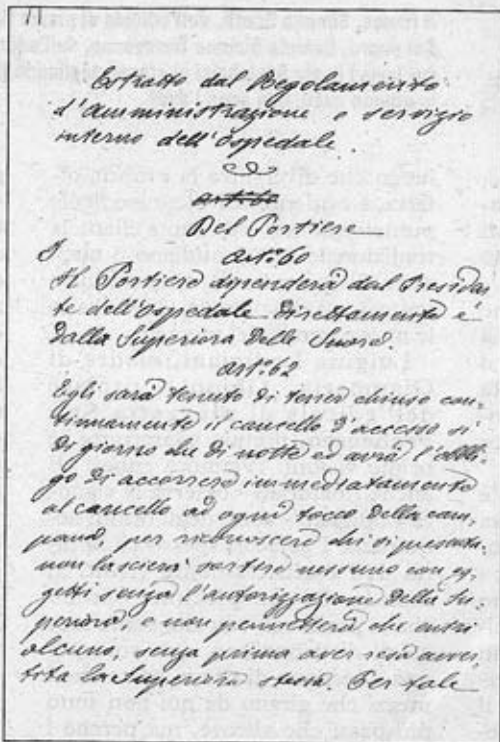 Estratto dal Regolamento
d'Amministrazione e servizio
interno dell'Ospedale.
art:o 60
Del Portiere
art:o 60
Il Portiere dipenderà dal Presiden
te dell'Ospedale direttamente e
dalla Superiora delle Suore.
art:o 62
Egli sarà tenuto di tener chiuso con,
tinuamente il cancello d'accesso sì
di giorno che di notte ed avrà l'obbli,
go di accorrere immediatamente
al cancello ad ogni tocco della cam,
pana, per riconoscere chi si presenta,
non lascierà sortire nessuno con og,
getti senza l'autorizzazione della Su,
periora, e non permetterà che entri
alcuno, senza prima aver resa avver,
tita la Superiora stessa. Per tale